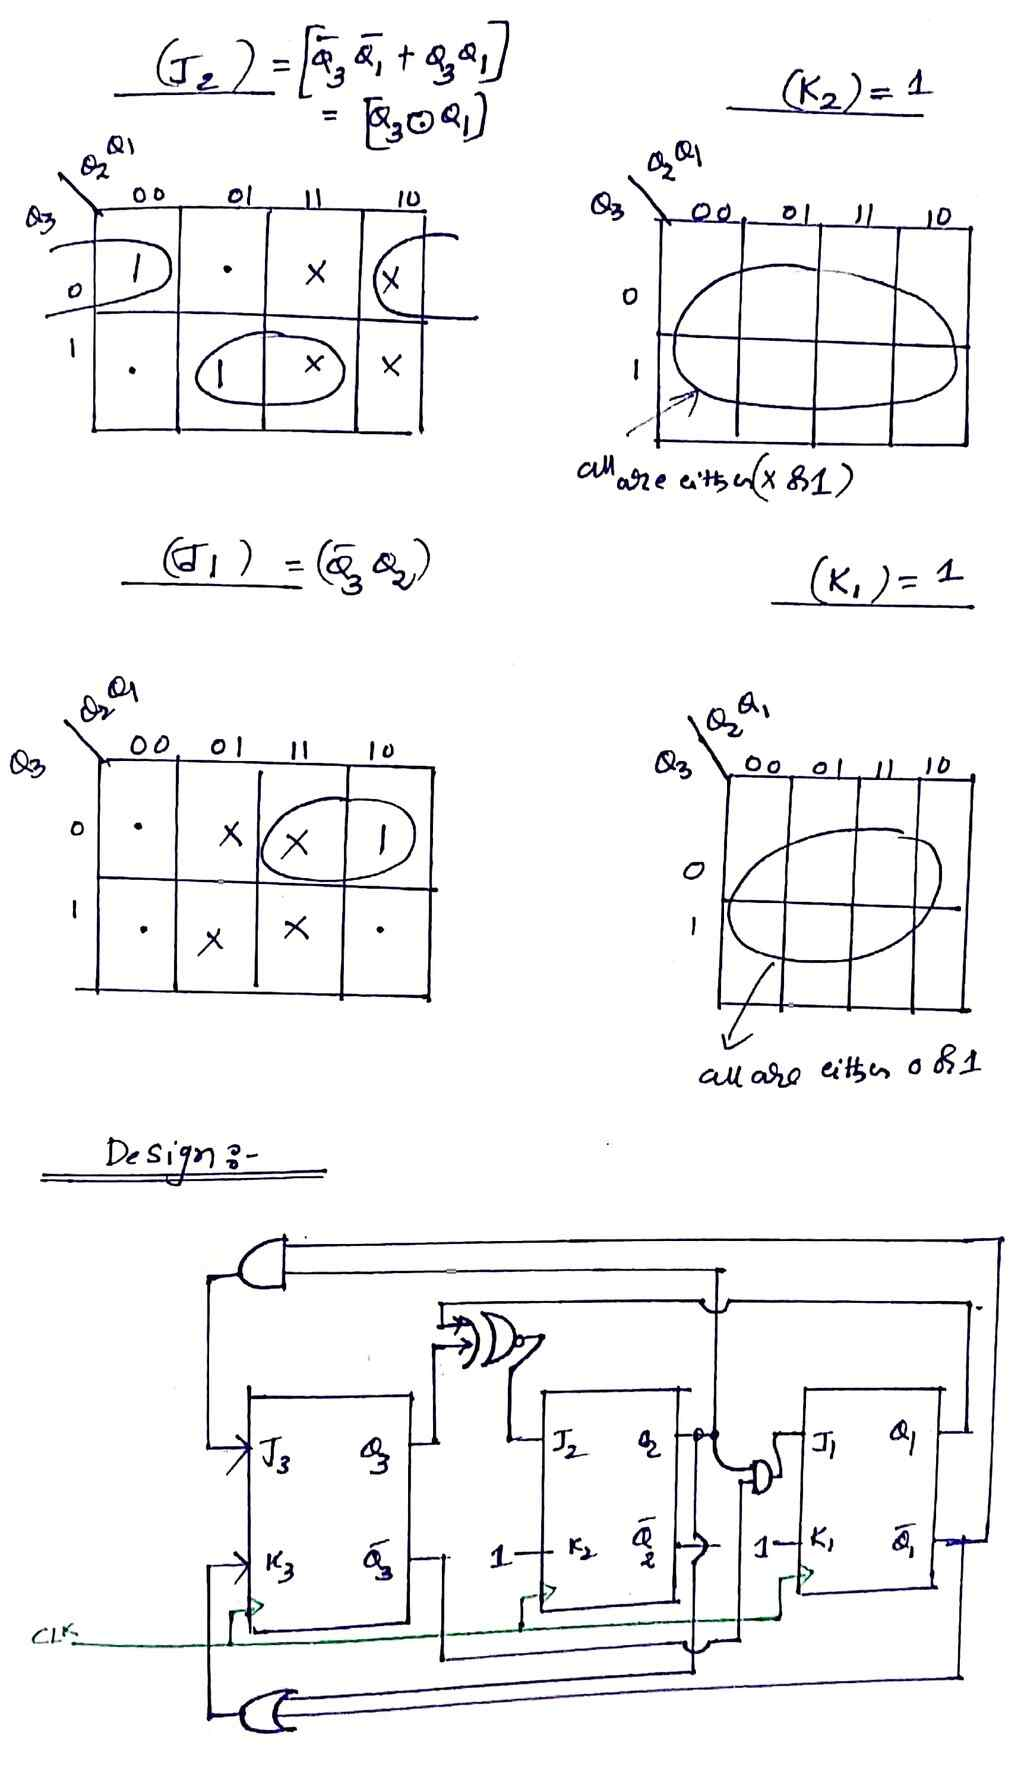 (J₂) = [Q̄₃ Q̄₁ + Q₃Q₁]
= [Q₃⊙Q₁]
(K₂) = 1
Q₂Q₁
Q₃ 00 01 11 10
0 1 • x x
1 • 1 x x
Q₂Q₁
Q₃ 00 01 11 10
0
1
all are either (x or 1)
(J₁) = (Q̄₃ Q₂)
(K₁) = 1
Q₂Q₁
Q₃ 00 01 11 10
0 • x x 1
1 • x x •
Q₂Q₁
Q₃ 00 01 11 10
0
1
all are either 0 or 1
Design :-
J₃ Q₃ J₂ Q₂ J₁ Q₁
K₃ Q̄₃ 1 K₂ Q̄₂ 1 K₁ Q̄₁
CLK